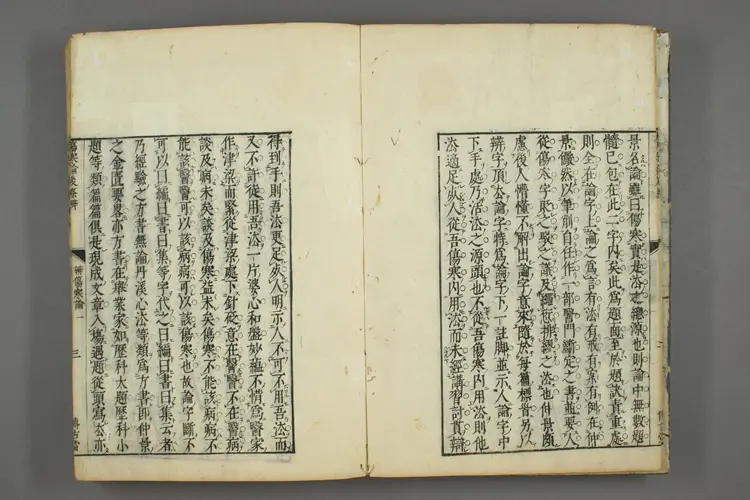 景名論雖曰傷寒實是法之總源也則論中無數題
髓已包在此二字內矣此爲題面至於題試責重處
則全在論字上論之爲言有法有戒有案有例在仲
景儼然以筆削自任作一部醫門繩定之書並要人
從傷寒字反之駁之議及辨從排認之法也仲景顧
慮後人懵懂不解出論字意來隨於每篇標首另以
辨字頂本論字特爲論字下一註脚並示人論字中
下手處乃活法之源頭也不從吾傷寒內用法則他
法適足殃人從吾傷寒內用法而未經講習討貫辯
得到手則吾法更足殃人明示人不可不用吾法而
又不許從用吾法一片婆心和盤妙蘊不惜爲醫家
作津梁而緊從津梁處下針砭意在醫醫不在醫病
談及病未矣談及傷寒益未矣傷寒不能該病病不
能該醫醫可以該病病可以該傷寒也故論字斷不
可以曰編曰書曰集等字代之曰編曰書曰集云者
乃經驗之方書無論丹溪心法等類爲方書即仲景
之金匱要畧亦方書在舉業家如歷科大題歷科小
題等類篇篇俱是現成文章入塲遇題從頭寫去亦
辨傷寒論一
三